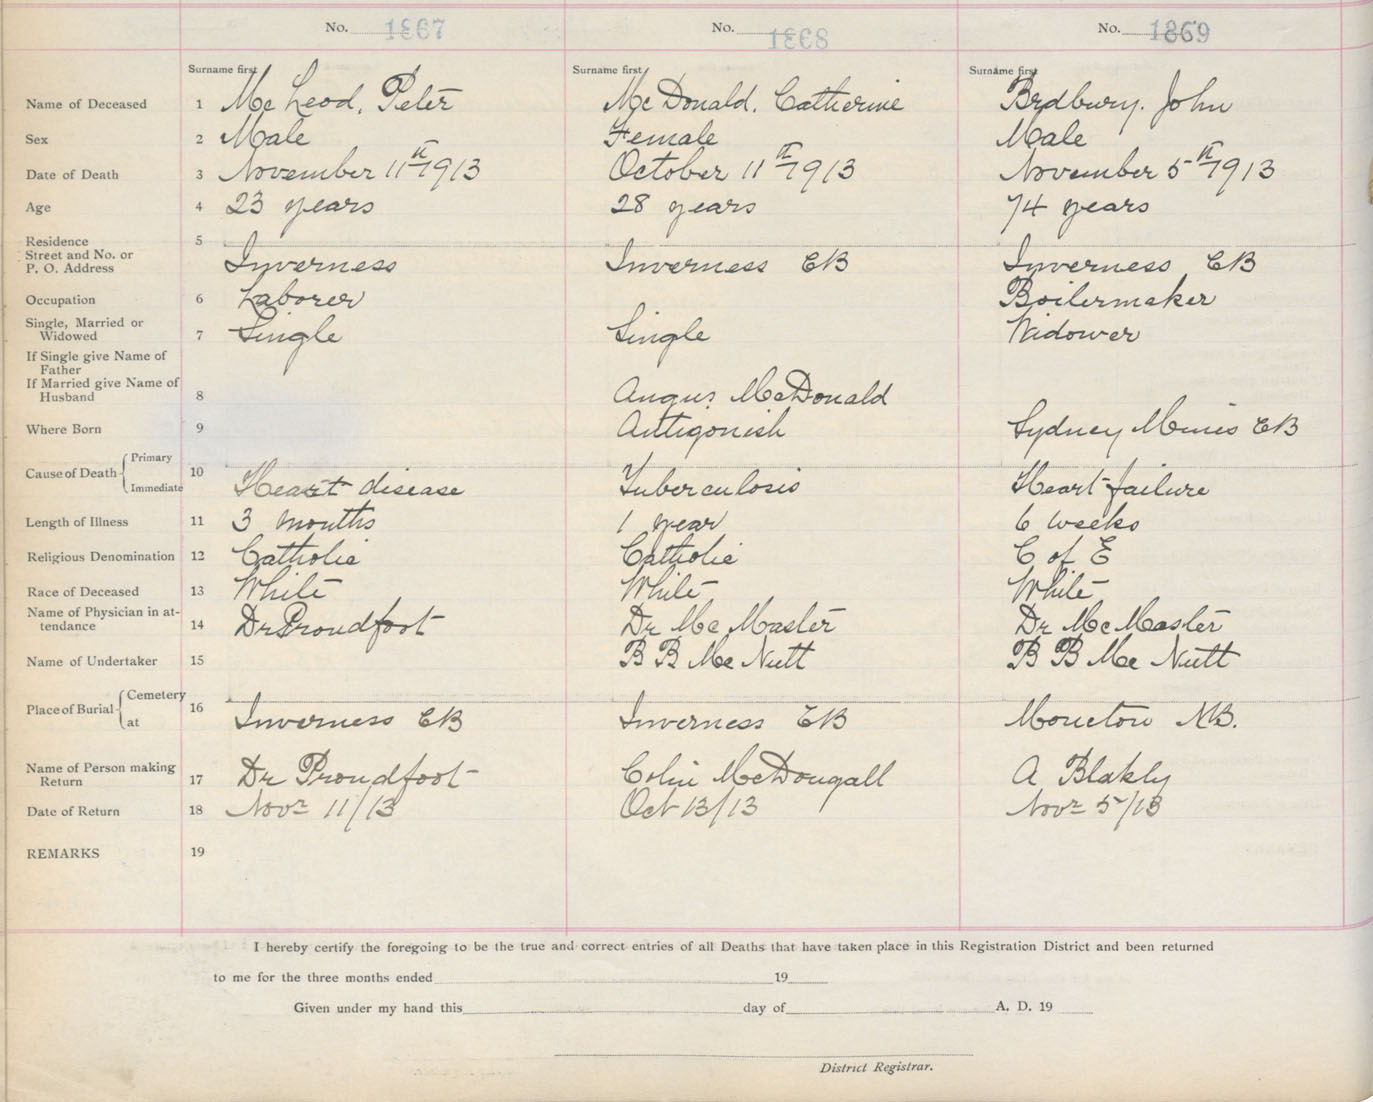 No. 1867 No. 1868 No. 1869
Surname first Surname first Surname first
Name of Deceased 1 Mc Leod, Peter McDonald, Catherine Brdbury. John
Sex 2 Male Female Male
Date of Death 3 November 11th 1913 October 11th 1913 November 5th 1913
Age 4 23 years 28 years 74 years
Residence 5
Street and No. or
P. O. Address Inverness Inverness CB Inverness CB
Occupation 6 Laborer Boilermaker
Single, Married or
Widowed 7 Single Single Widower
If Single give Name of
Father
If Married give Name of
Husband 8 Angus McDonald
Where Born 9 Antigonish Sydney Mines CB
Cause of Death Primary 10
Immediate Heart disease Tuberculosis Heart failure
Length of Illness 11 3 months 1 year 6 weeks
Religious Denomination 12 Catholic Catholic C of E
Race of Deceased 13 White White White
Name of Physician in at-
tendance 14 Dr Proudfoot Dr Mc Master Dr McMaster
Name of Undertaker 15 B B Mc Nutt B B Mc Nutt
Place of Burial Cemetery 16
at Inverness CB Inverness CB Moncton NB.
Name of Person making
Return 17 Dr Proudfoot Colin McDougall A Blakly
Date of Return 18 Novr 11/13 Oct 13/13 Novr 5/13
REMARKS 19
I hereby certify the foregoing to be the true and correct entries of all Deaths that have taken place in this Registration District and been returned
to me for the three months ended 19
Given under my hand this day of A. D. 19
District Registrar.